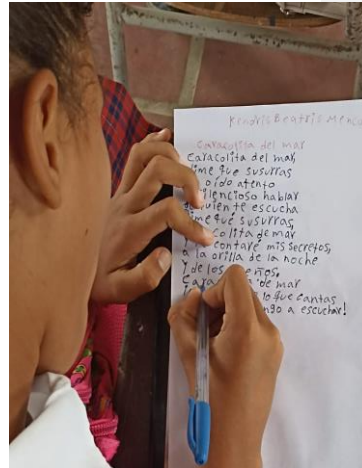 Kendris Beatris
Caracolita del mar
Caracolita del mar,
dime que susurras
oido atento
silencioso hablar
quien te escucha
Dime que susurras,
colita de mar
contaré mis secretos,
a la orilla de la noche
Y de los
de mar
lo que cantas
a escuchar!